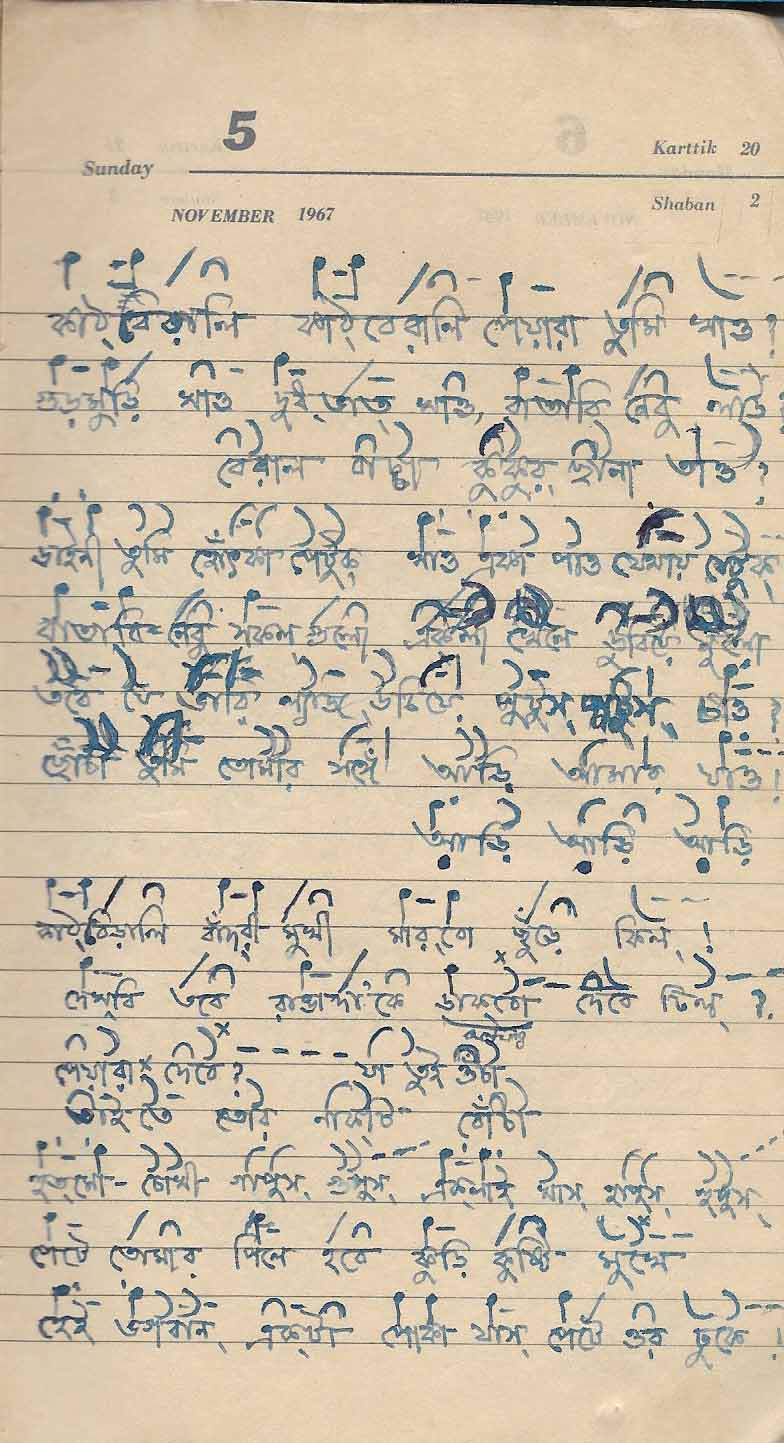 5
Sunday
Karttik 20
NOVEMBER 1967
Shaban 2
কাঠ্বেরালি কাঠ্বেরালি পেয়ারা তুমি খাও?
গুড়মুড়ি খাও দুধ্ভাত্ খাও, বাতাবি নেবু লাউ?
বেরাল বাচ্চা কুকুর্ ছানা তাও?
ডাইনী তুমি হোঁৎকা পেটুক্ খাও একা পাও যেথায় যেটুক্
বাতাবি-নেবু সকল গুলো একলা খেলে ডুবিয়ে নুলো
তবে যে ভারি ল্যাজ্ উঁচিয়ে পুটুস্ পাটুস্ চাও?
ছোঁচা তুমি তোমার সঙ্গে আড়ি আমার যাও!
আড়ি আড়ি আড়ি
কাঠ্বেড়ালি বাঁদরী মুখী মার্বো ছুঁড়ে কিল্!
দেখ্বি তবে রাঙাদা'কে ডাকবো দেবে ঢিল্?
পেয়ারা দেবে? যা তুই ওঁচা
তাইতে তোর নাকটি বোঁচা
হুত্মো-চোখী গাপুস্ গুপুস্ এক্লাই খাস্ হাপুস্ হুপুস্
পেটে তোমার পিলে হবে কুড়ি কুষ্টি মুখে
হেই ভগবান্ একটা পোকা যাস্ পেটে ওর ঢুকে!